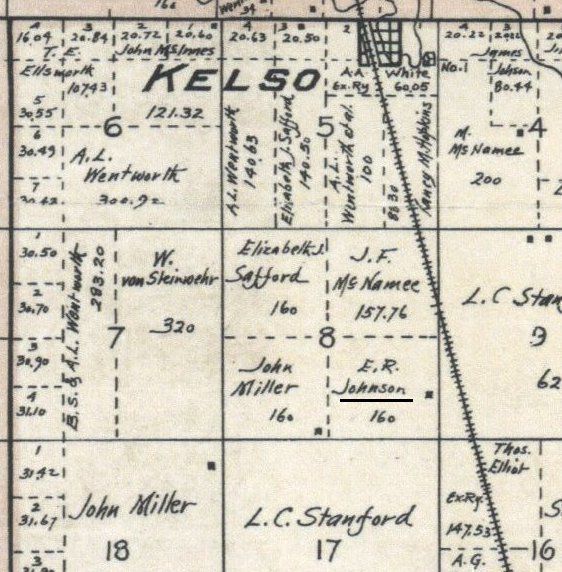 16a
Went
34
4
3
2
1
4
3
2
4
3
16.04
20.84
20.72
20.60
20.63
20.50
20.22
T. E.
Ellsworth
107.43
John McInnes
James
Johson
80.44
No.1
KELSO
A.A. White
Ex.Ry 60.05
5
30.55
6
30.49
7
6
121.32
A.L.
Wentworth
300.92
A.L. Wentworth
140.63
Elizabeth J. Safford
140.50
5
A.L.
Wentworth et al.
100
86.30
Nancy M. Hopkins
M.
McNamee
200
4
1
30.50
2
30.70
3
30.90
4
31.10
B.S. & A.L. Wentworth
283.20
W.
von Steinwehr
320
7
Elizabeth J.
Safford
160
J.F.
McNamee
157.76
8
John
Miller
160
E.R.
Johnson
160
L.C Stan
9
62
1
31.42
2
31.67
3
John Miller
18
L.C. Stanford
17
Thos.
Elliot
Ex.Ry.
147.53
A.G.
16
S